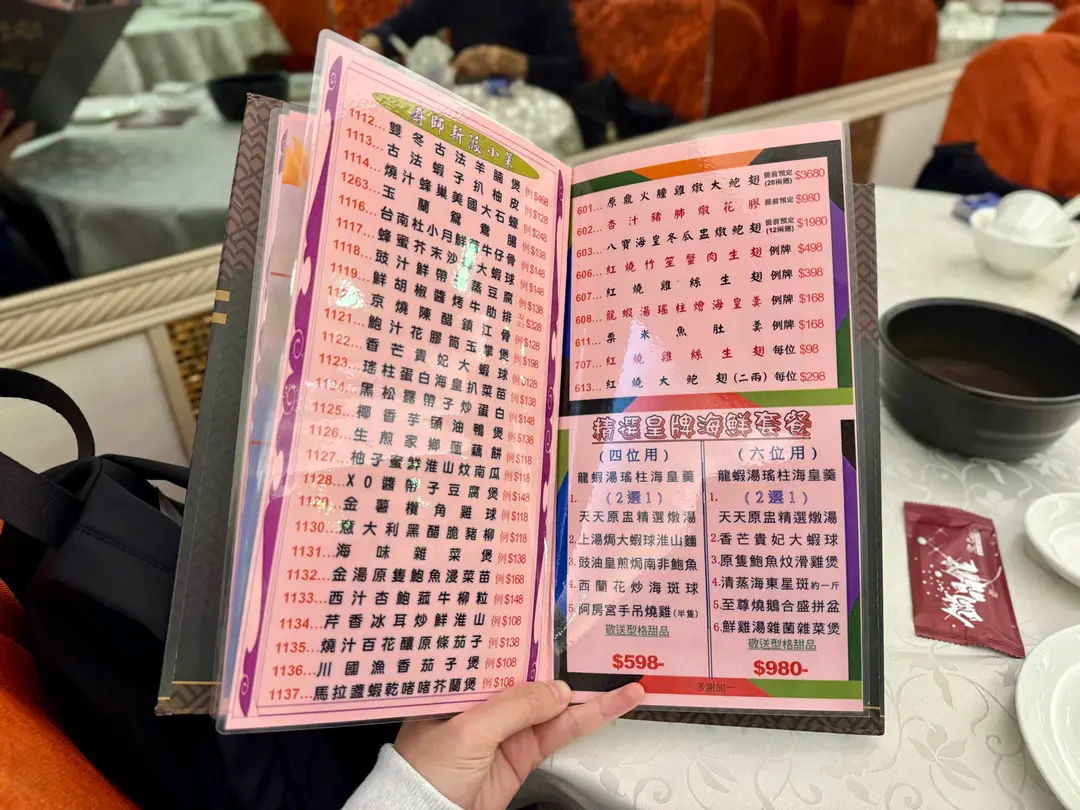 廚師新派小菜
1112...雙冬古法羊腩煲 例$468
1113...古法蝦子扒柚皮 例$128
1114...燒汁蜂巢美國大石蠔 例$248
1263...玉蘭鴛鴦腸 例$138
1116...台南杜小月鮮牛仔骨 例$148
1117...蜂蜜芥末沙大蝦球 例$148
1118...豉汁鮮帶蒸豆腐 例$138
1119...鮮胡椒醬烤牛肋排 $328
京燒陳醋鎮江骨 例$128
1121...鮑汁花膠筒玉掌煲 例$198
1122...香芒貴妃大蝦球 例$128
1123...瑤柱蛋白海皇扒菜苗 例$138
黑松露帶子炒蛋白 例$148
1125...椰香芋頭油鴨煲 例$138
1126...生煎家鄉蓮藕餅 例$118
1127...柚子蜜鮮淮山炆南瓜 例$118
1128...XO醬帶子豆腐煲 例$148
金薯欖角雞球 例$118
1130...意大利黑醋脆豬柳 例$118
1131...海味雜菜煲 例$138
1132...金湯原隻鮑魚浸菜苗 例$168
1133...西汁杏鮑菰牛柳粒 例$148
1134...芹香冰耳炒鮮淮山 例$108
1135...燒汁百花釀原條茄子 例$138
1136...川國漁香茄子煲 例$108
1137...馬拉盞蝦乾啫啫芥蘭煲 例$108
601...原鼎火朣雞燉大鮀翅 提前預定(28兩翅) $3680
602...杏汁豬肺燉花膠 提前預定 $980
603...八寶海皇冬瓜盅燉鮀翅 提前預定(12兩翅) $1980
606...紅燒竹笙蟹肉生翅 例牌 $498
607...紅燒雞絲生翅 例牌 $398
608...龍蝦湯瑤柱燴海皇羹 例牌 $168
611...粟米魚肚羹 例牌 $168
707...紅燒雞絲生翅 每位 $98
613...紅燒大鮀翅(二兩) 每位 $298
精選皇牌海鮮套餐
(四位用)
龍蝦湯瑤柱海皇羹
1. (2選1)
天天原盅精選燉湯
2.上湯焗大蝦球淮山麵
3.豉油皇煎焗南非鮑魚
4.西蘭花炒海斑球
5.阿房宮手吊燒雞(半隻)
敬送型格甜品
$598-
(六位用)
龍蝦湯瑤柱海皇羹
1. (2選1)
天天原盅精選燉湯
2.香芒貴妃大蝦球
3.原隻鮑魚炆滑雞煲
4.清蒸海東星斑約一斤
5.至尊燒鵝合盛拼盆
6.鮮雞湯雜菌雜菜煲
敬送型格甜品
$980-
多謝加一